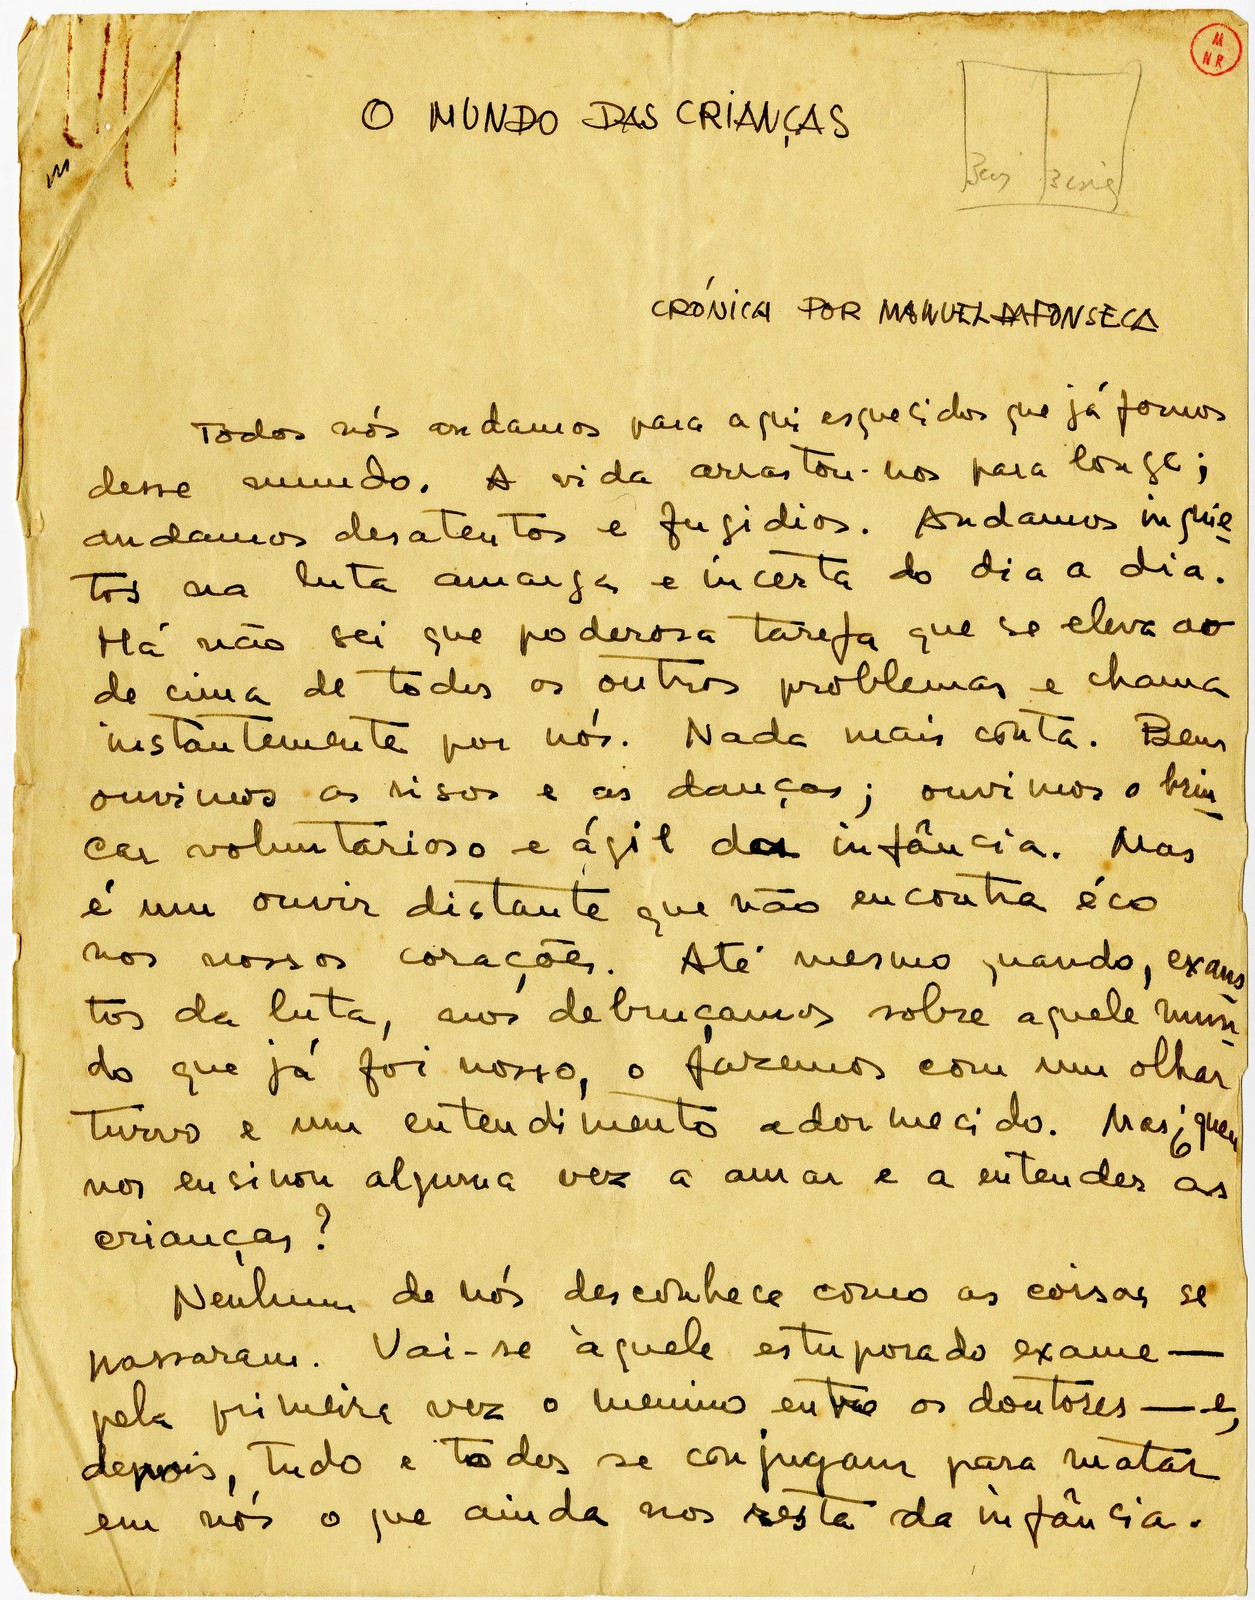 M
NR
O MUNDO DAS CRIANÇAS
CRÓNICA POR MANUEL DA FONSECA
Todos nós andamos para aqui esquecidos que já fomos
desse mundo. A vida arrastou-nos para longe;
andamos desatentos e fugidios. Andamos inquie
tos na luta amarga e incerta do dia a dia.
Há não sei que poderosa tarefa que se eleva ao
de cima de todos os outros problemas e chama
instantemente por nós. Nada mais conta. Bem
ouvimos os risos e as danças; ouvimos o brin
car voluntarioso e ágil da infância. Mas
é um ouvir distante que não encontra éco
nos nossos corações. Até mesmo quando, exaus
tos da luta, nos debruçamos sobre aquele mun
do que já foi nosso, o fazemos com um olhar
turvo e um entendimento adormecido. Mas ¿quem
nos ensinou alguma vez a amar e a entender as
crianças?
Nenhum de nós desconhece como as coisas se
passaram. Vai-se àquele estuporado exame —
pela primeira vez o menino entre os doutores — e,
depois, tudo e todos se conjugam para matar
em nós o que ainda nos resta da infância.